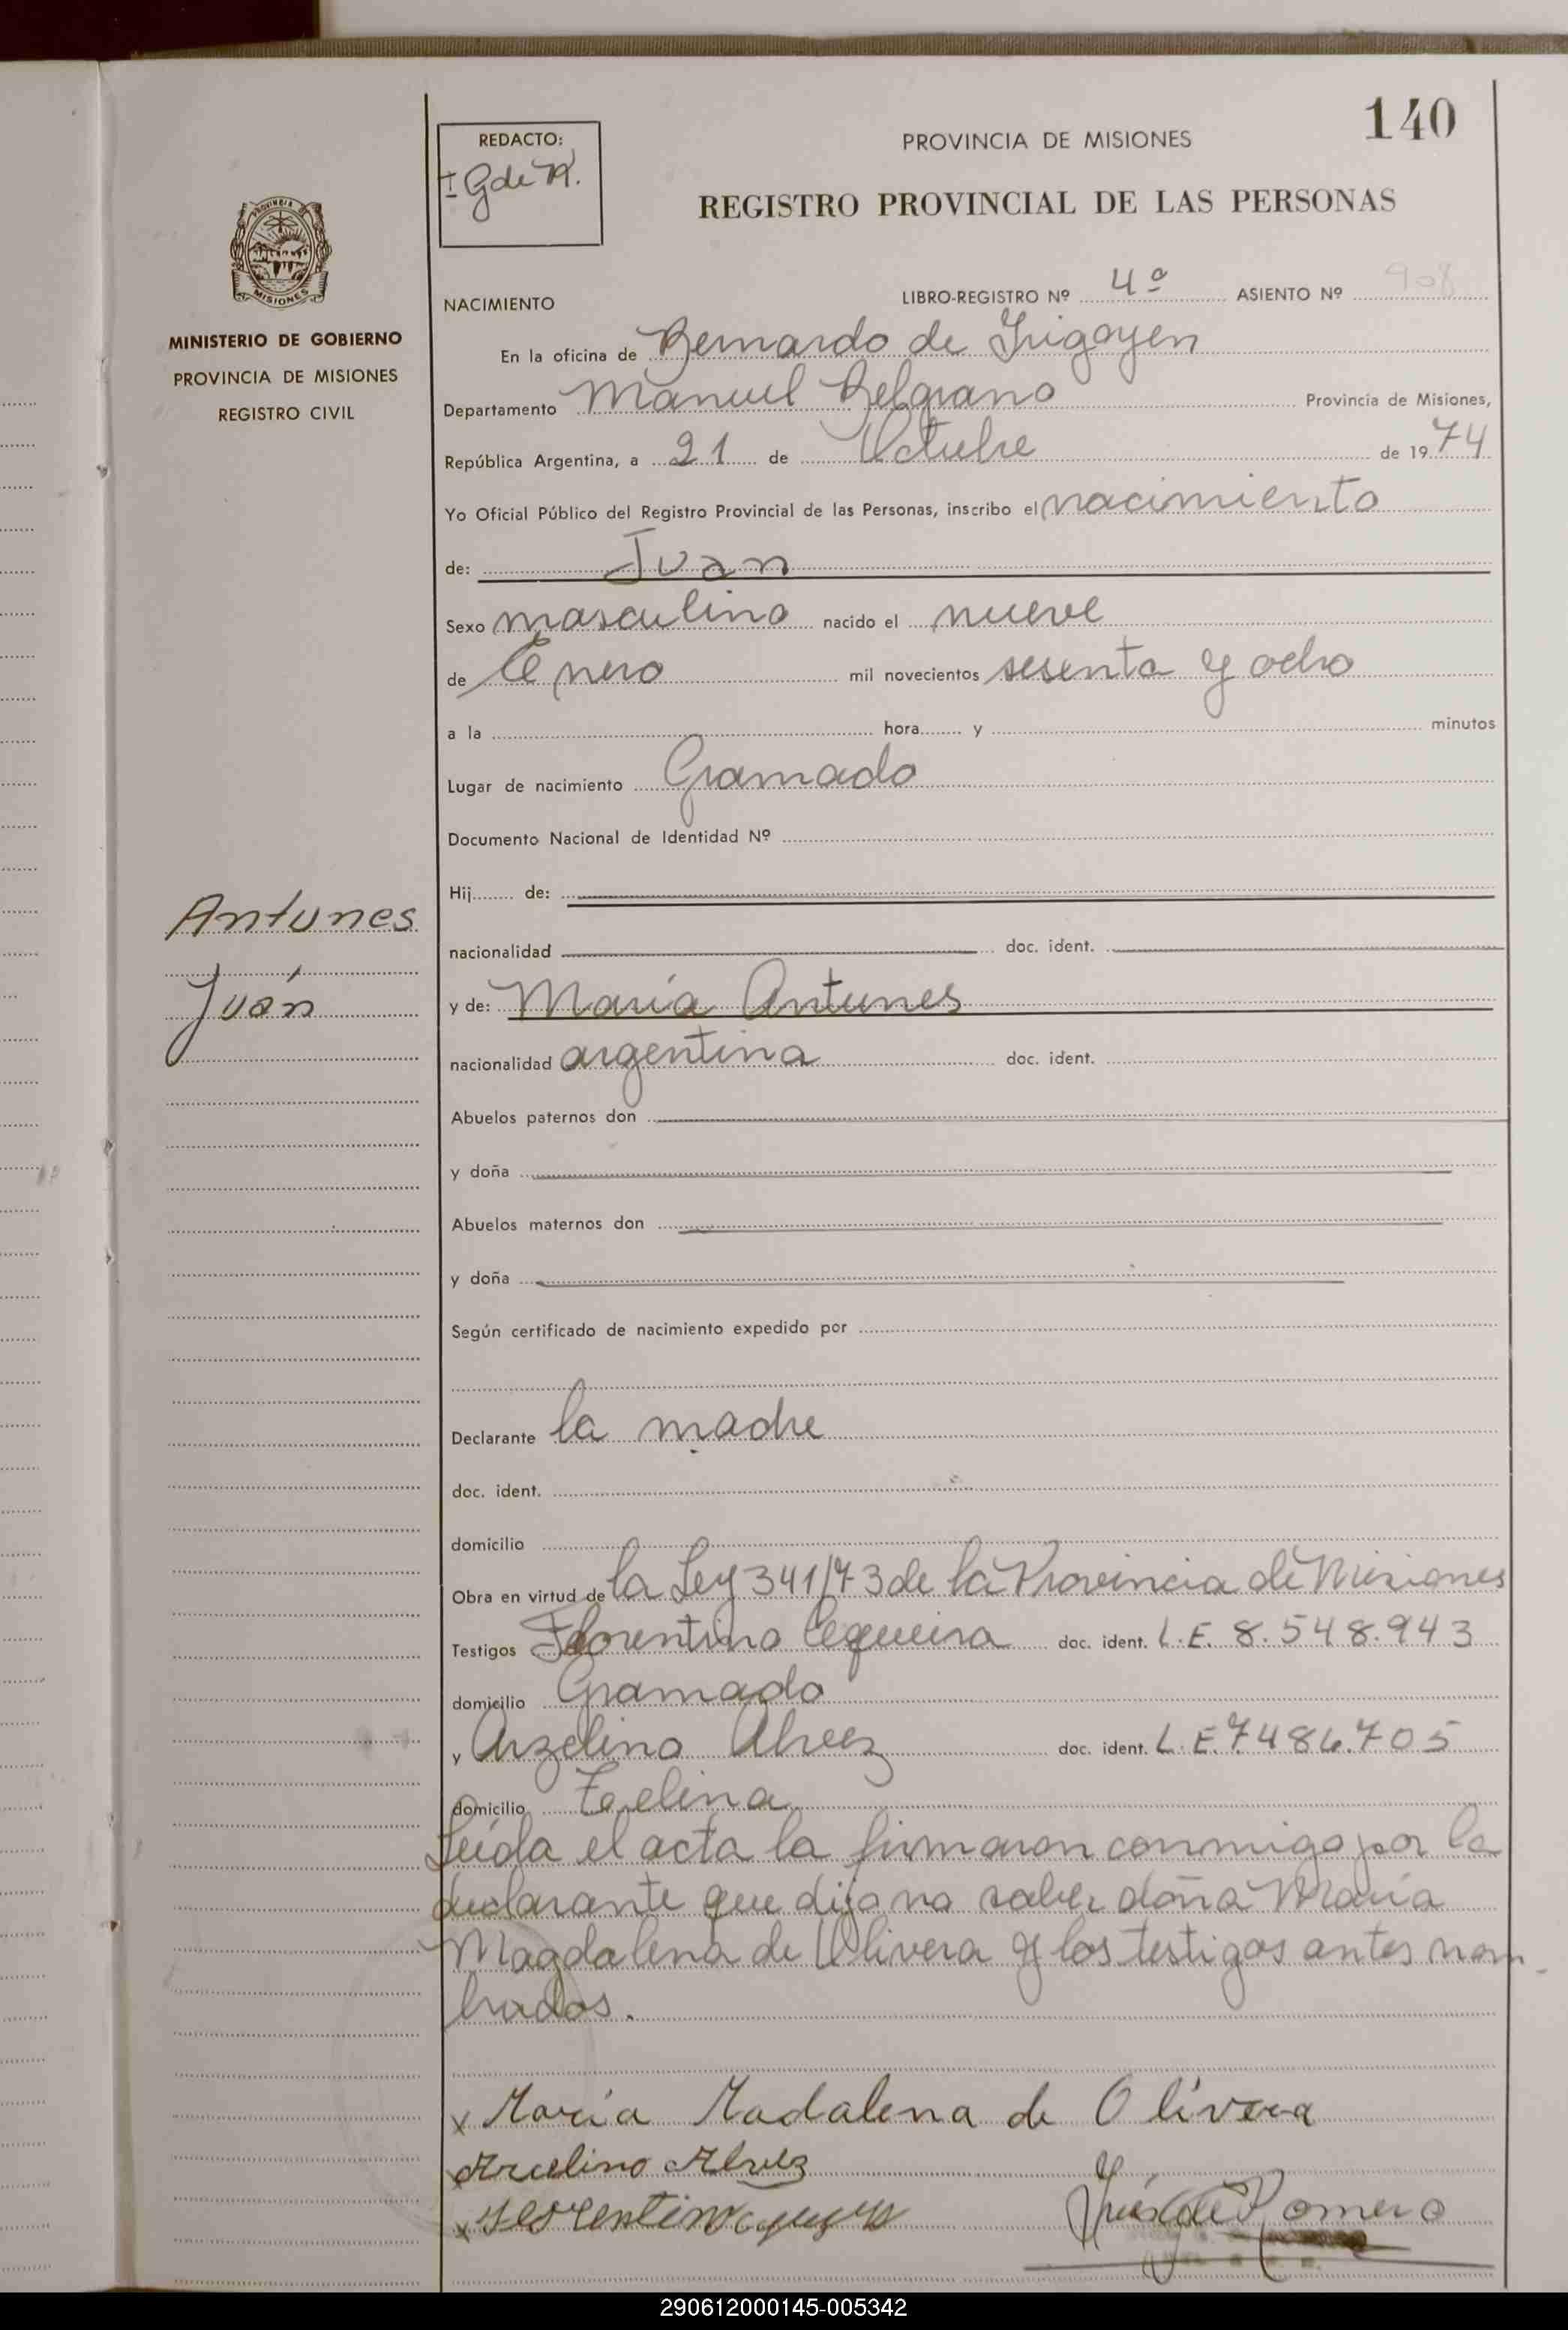 140
REDACTO:
I G de R.
PROVINCIA DE MISIONES
REGISTRO PROVINCIAL DE LAS PERSONAS
PROVINCIA DE
MISIONES
MINISTERIO DE GOBIERNO
PROVINCIA DE MISIONES
REGISTRO CIVIL
NACIMIENTO LIBRO-REGISTRO Nº 4º ASIENTO Nº 908
En la oficina de Bernardo de Irigoyen
Departamento Manuel Belgrano Provincia de Misiones,
República Argentina, a 21 de Octubre de 1974
Yo Oficial Público del Registro Provincial de las Personas, inscribo el nacimiento
de: Juan
Sexo masculino nacido el nueve
de Enero mil novecientos sesenta y ocho
a la hora y minutos
Lugar de nacimiento Gramado
Documento Nacional de Identidad Nº
Hij de:
Antunes
nacionalidad doc. ident.
Juan
y de: María Antunes
nacionalidad argentina doc. ident.
Abuelos paternos don
y doña
Abuelos maternos don
y doña
Según certificado de nacimiento expedido por
Declarante la madre
doc. ident.
domicilio
Obra en virtud de la Ley 341/73 de la Provincia de Misiones
Testigos Florentino doc. ident. L.E. 8.548.943
domicilio Gramado
y Arzelino Alvez doc. ident. L.E. 7.486.705
domicilio
Leída el acta la firmaron conmigo por la
declarante que dijo no saber doña María
Magdalena de Olivera y los testigos antes nom-
brados.
x María Madalena de Olivera
Arcelino Alvez
x
Romero
290612000145-005342